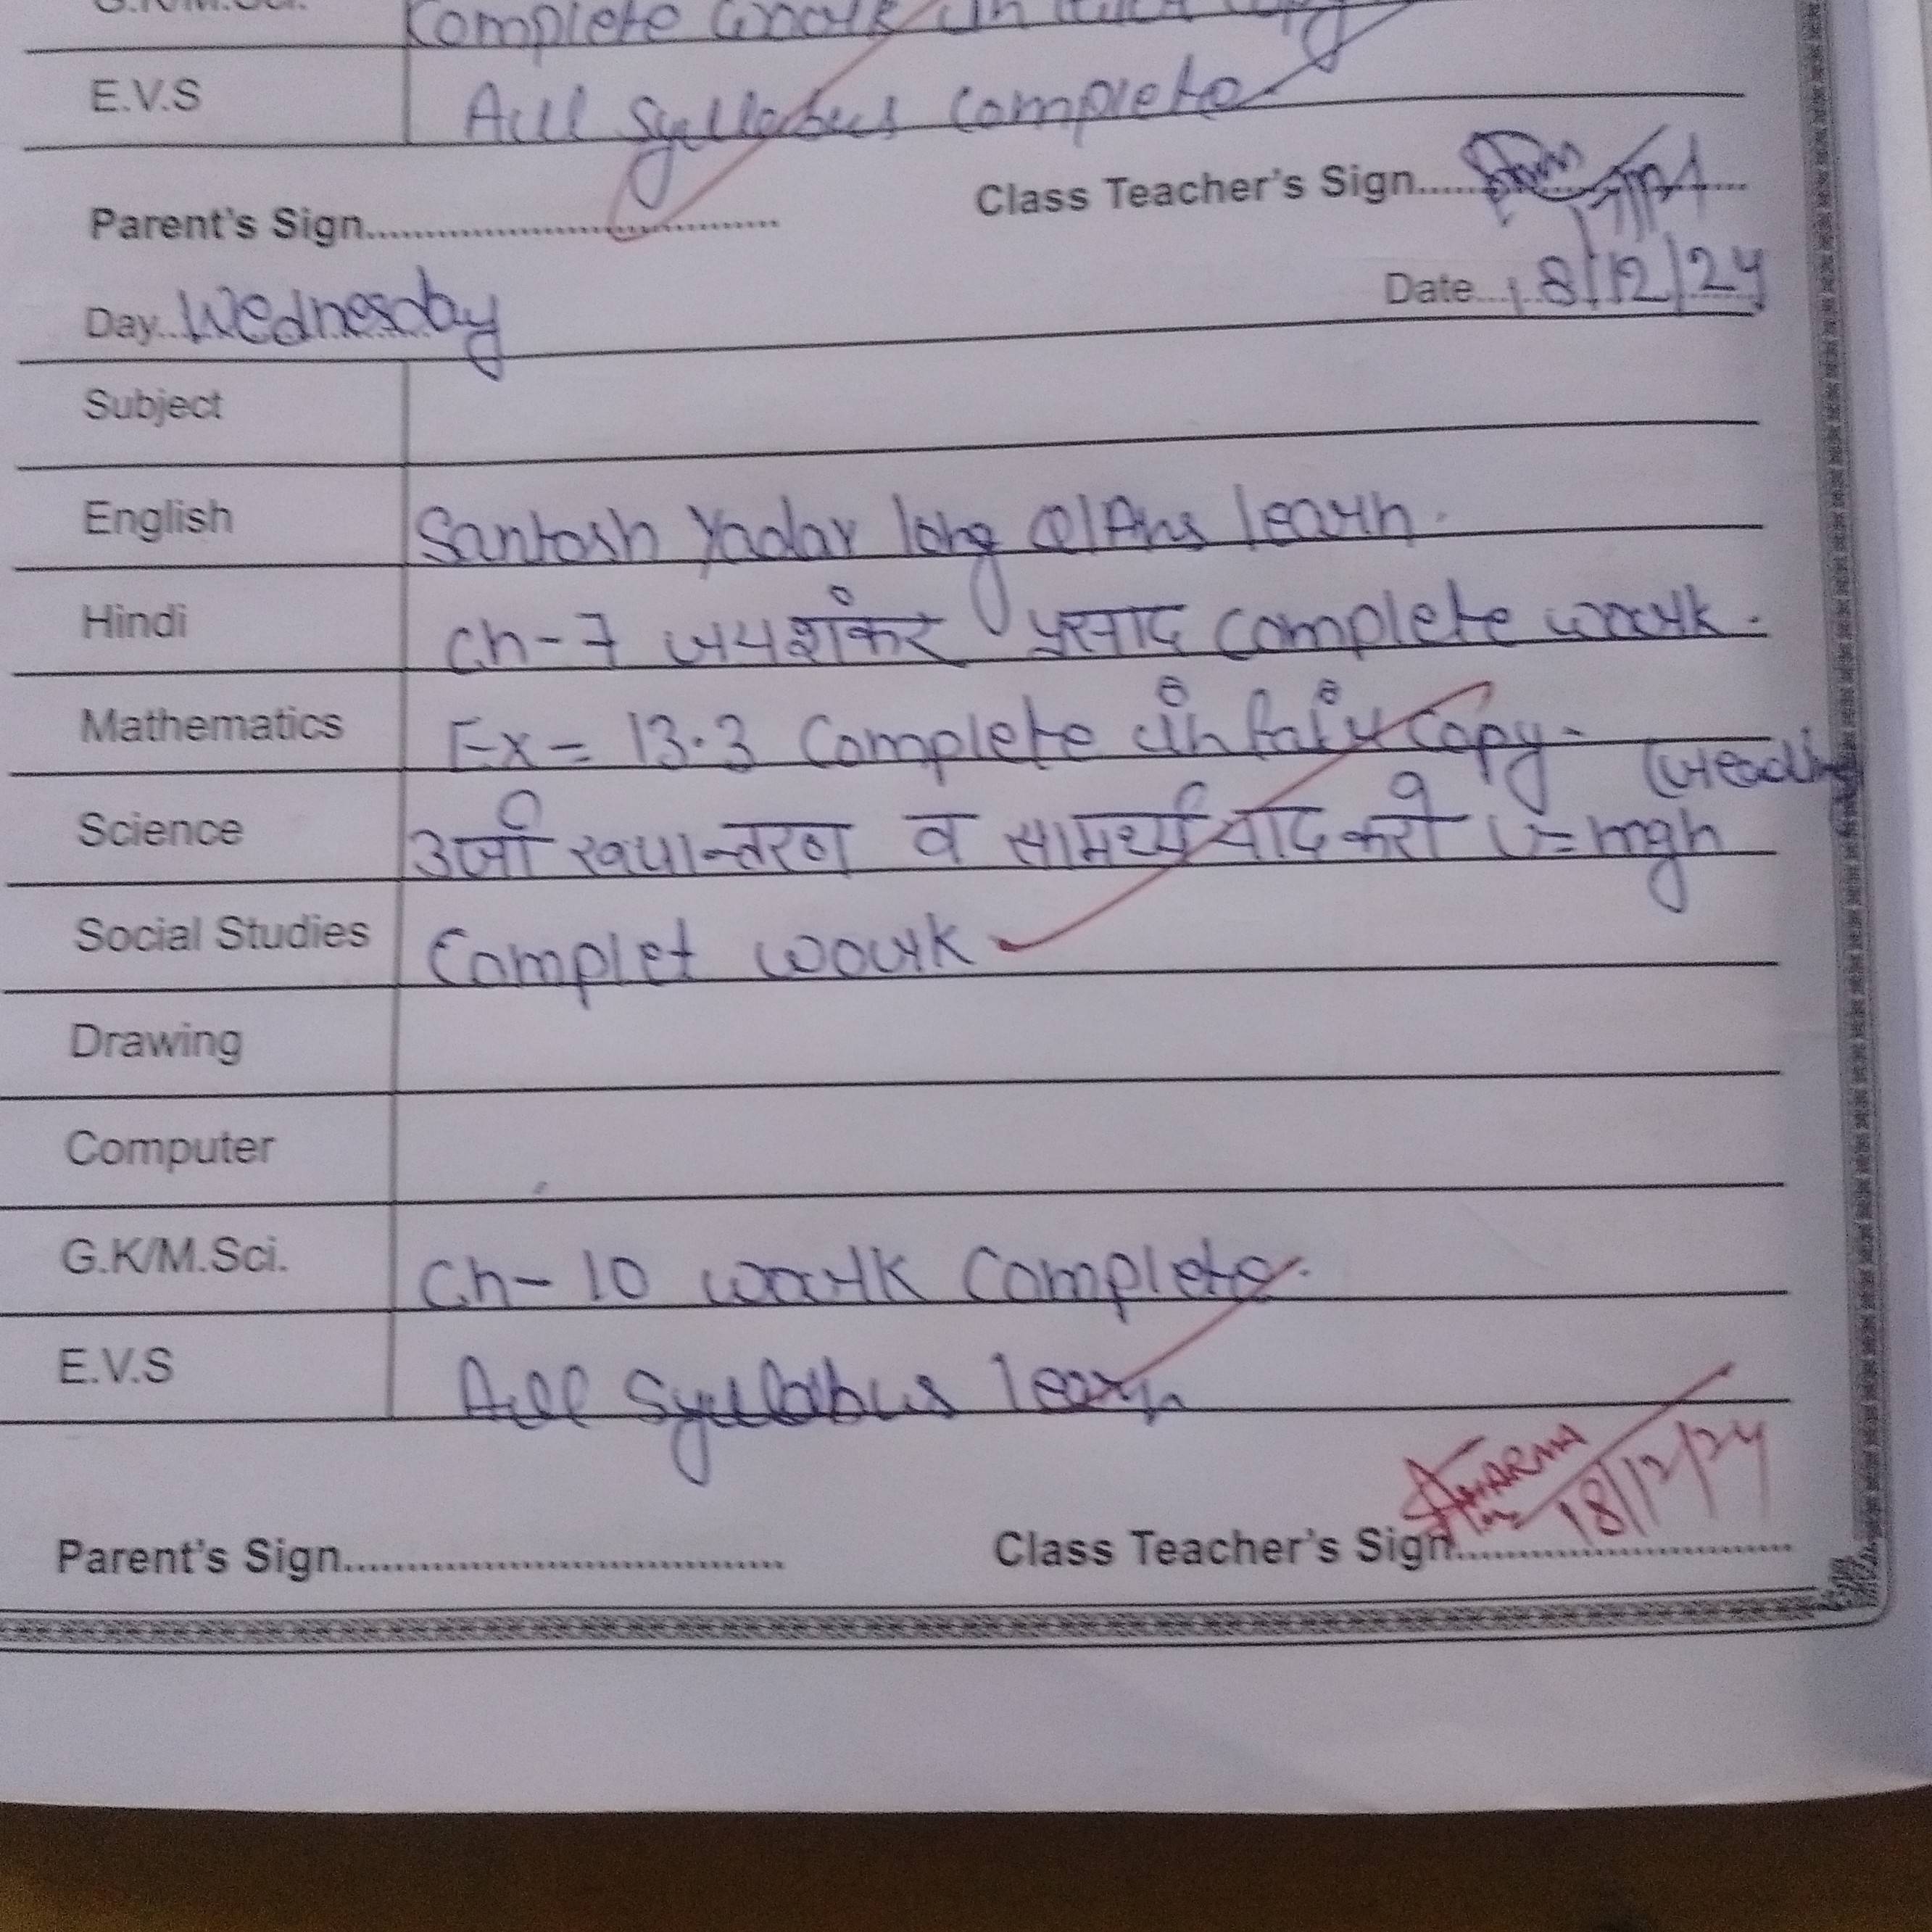 G.K/M.Sci. Complete Work in
E.V.S All Syllabus Complete
Parent's Sign........ Class Teacher's Sign........
Day Wednesday Date 18/12/24
Subject
English Santosh Yadav long Q/Ans learn.
Hindi Ch-7 जयशंकर प्रसाद Complete work.
Mathematics Ex = 13.3 Complete in fair Copy.
Science उर्जा रुपान्तरण व सामर्थ्य याद करो U=mgh
Social Studies Complet work
Drawing
Computer
G.K/M.Sci. Ch-10 work Complete.
E.V.S All Syllabus learn
SHARMA 18/12/24
Parent's Sign........ Class Teacher's Sign........